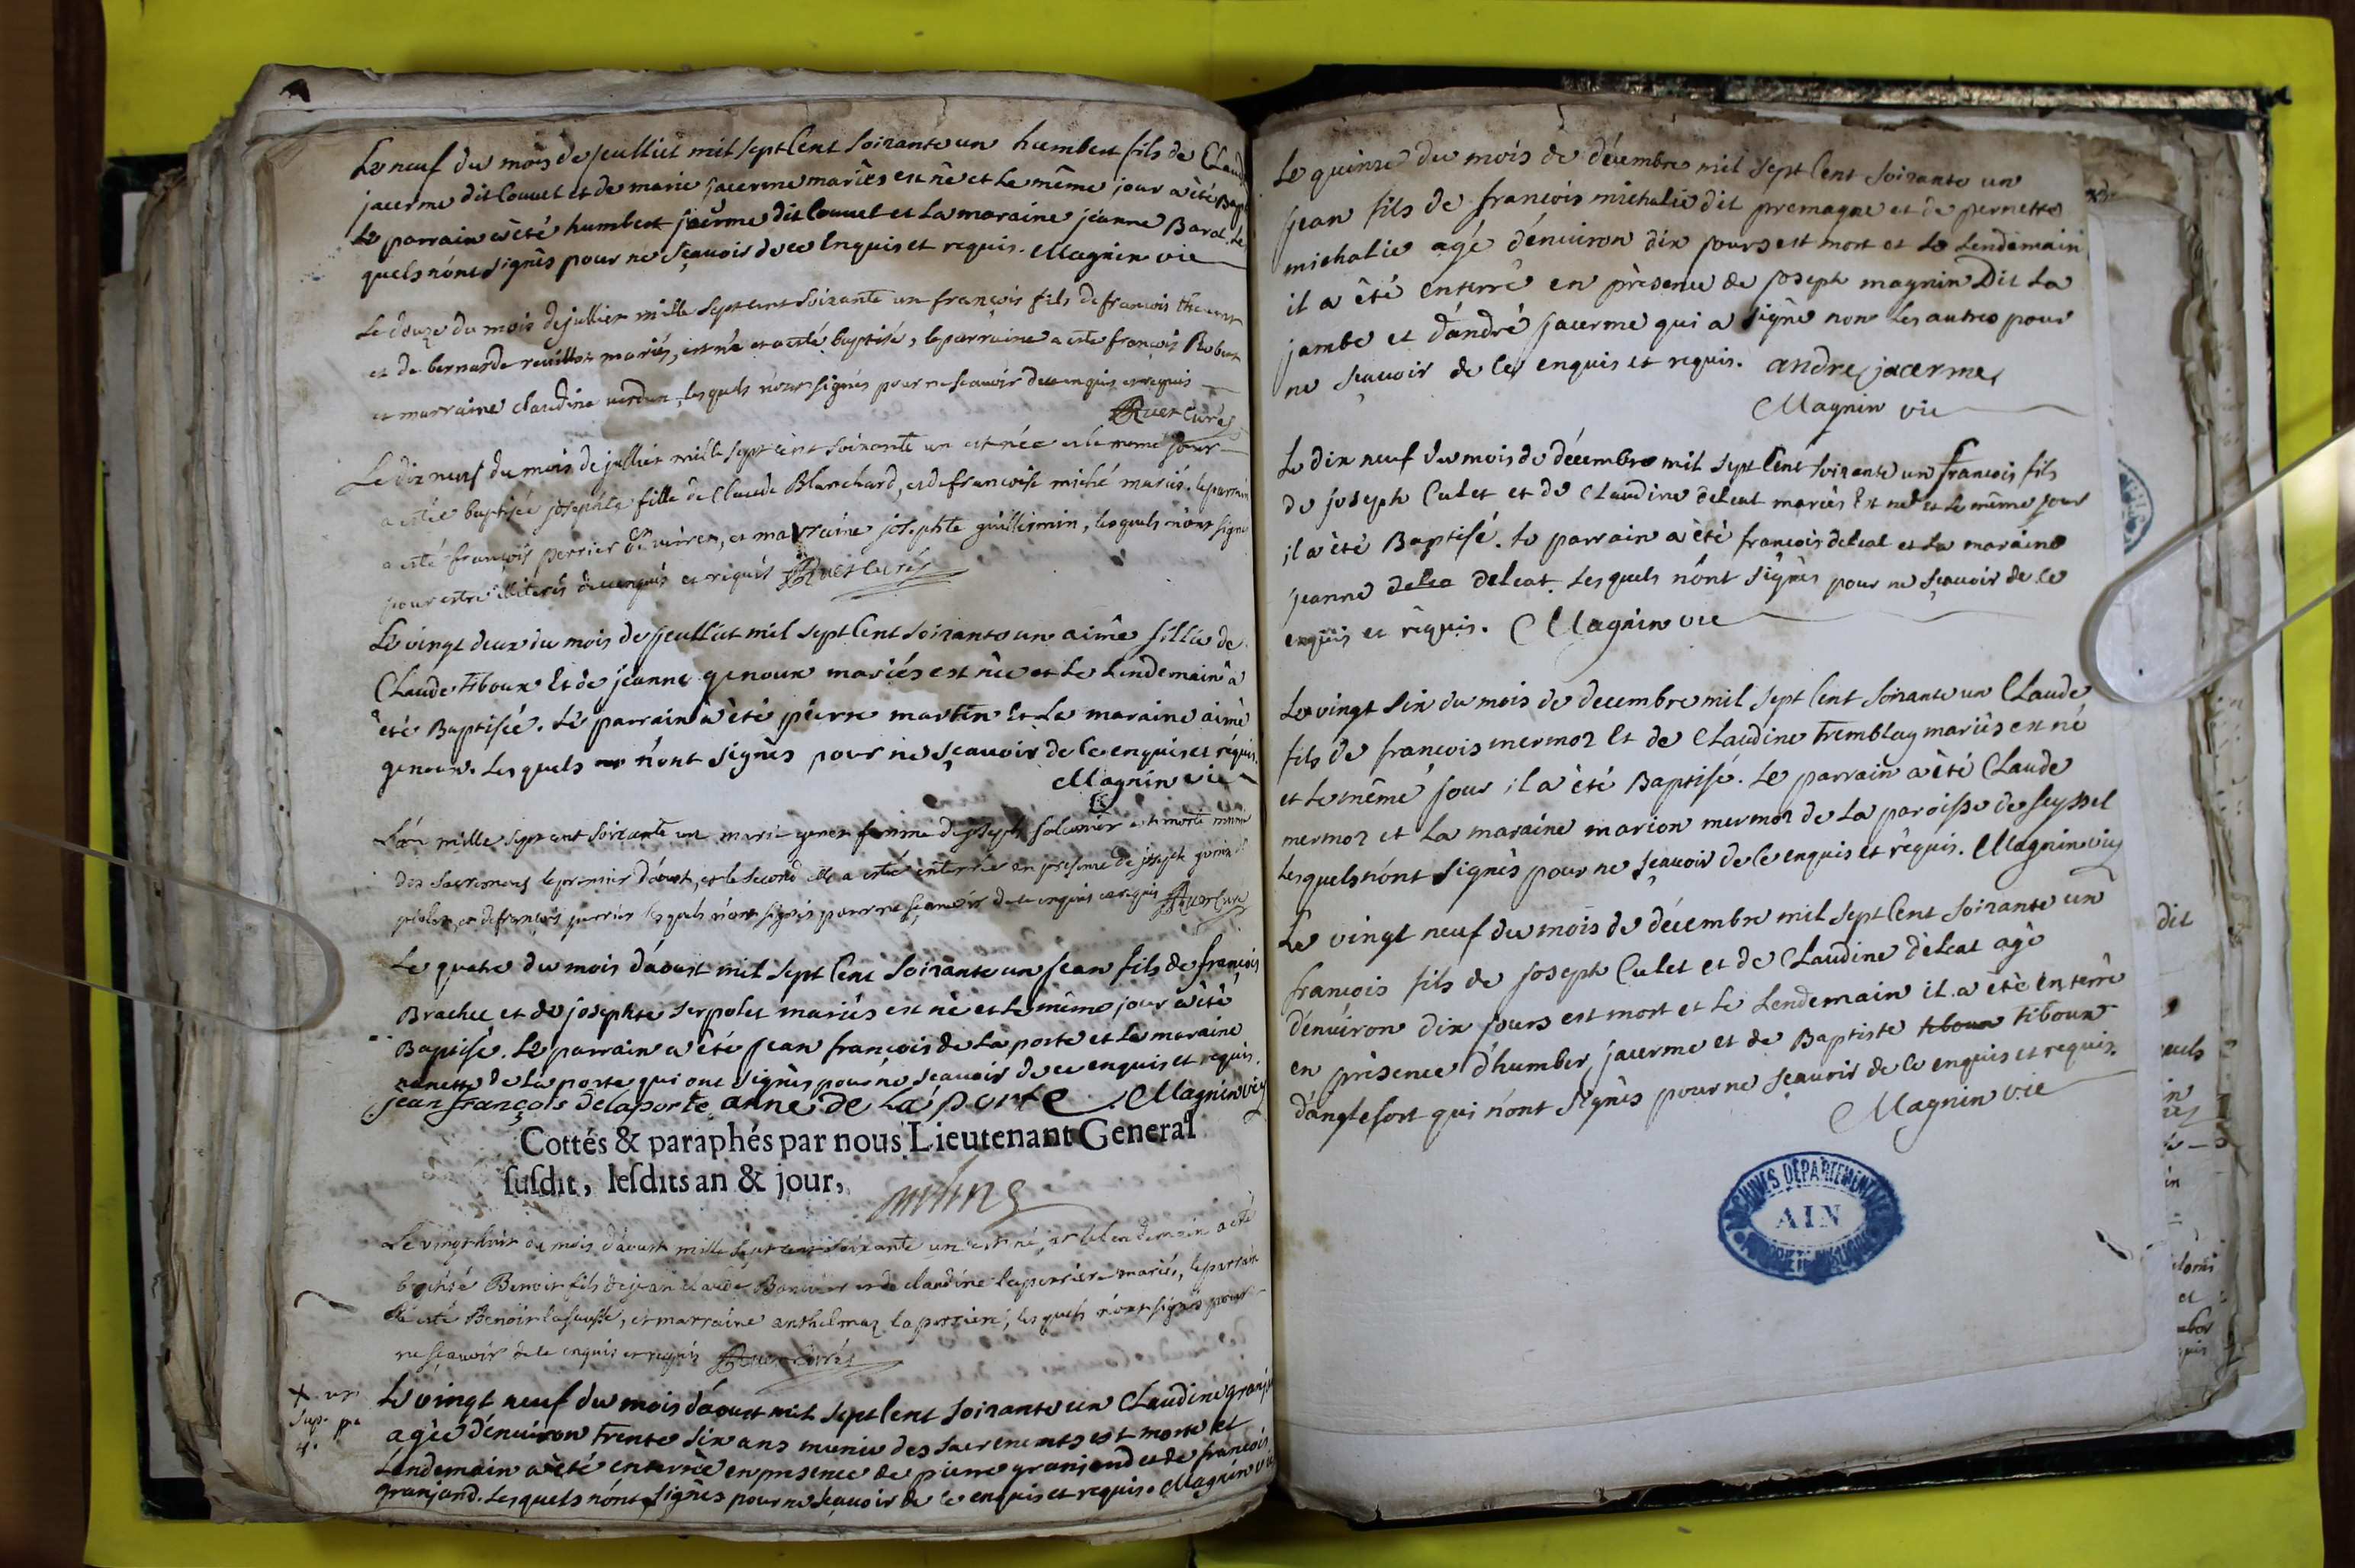 Le neuf du mois de jeulliet mil sept Cent soixante un humbert fils de Claud
jacerme dit Couuet et de marie jacerme mariés est né et le même jour a été Bapt
Le parrain a été humbert jacerme dit Couuet et La maraine jéanne Barat. Le
quels n'ont signés pour ne sçauoir de ce Enquis et requis. Magnin vic
Le douze du mois de jullier mille sept cent soixante un françois fils de francois
et de bernarde reuillot mariés, est né et a esté baptisé, le parraine a esté françois Robert
et marraine claudine uerdun, lesquels n'ont signés pour ne scauoir de ce enquis et requis
Ruet Curé
Le dix neuf du mois de jullier mille sept cent soixante un est née et le meme jour
a estée baptisée josephte fille de Claude Blanchard, et de francoise miché mariés. le parrain
a esté françois perrier de uirieu, et marraine josephte guillermin, lesquels n'ont signé
pour estre illiterés de ce enquis et requis Ruet Curé
Le vingt deux du mois de jeulliet mil sept Cent soixante un aimé fillie de
Claude tiboux Et de jeanne genoux mariés est née et Le Lendemain a
été Baptisée. Le parrain a été pierre martin Et La maraine aimé
genoux. Les quels n'ont signés pour ne sçauoir de ce enquis et réquis.
Magnin vic
L'an mille sept cent soixante un marie genou femme de joseph falconier est morte munie
des sacrements le premier d'aoust, et le second elle a esté enterrée en presence de joseph
et de françois perrier lesquels n'ont signés pour ne sçauoir de ce enquis et requis Ruet Curé
Le quatre du mois d'aoust mil sept Cent soixante un jean fils de francois
Brachet et de josephte serpolet mariés est né et le même jour a été
Baptisé. Le parrain a été jean francois de La porte et La maraine
nanette de La porte qui ont signés pour ne sçauoir de ce enquis et requis.
jean françois Delaporte anne de La porte Magnin vic
Cottés & paraphés par nous Lieutenant General
ſuſdit, leſdits an & jour,
Le vingt huit du mois d'aoust mille sept cent soixante un est né et le lendemain a été
baptisé Benoit fils de jean claude et de claudine laperriere mariés, le parrain
a esté Benoit, et marraine anthelmaz la perriere, lesquels n'ont signés pour
ne scauoir de ce enquis et requis Ruet Curé
Le vingt neuf du mois d'aoust mil sept Cent soixante un Claudine granj
agée d'enuiron trente six ans munie des sacrements est morte et
Lendemain a été enterrée en presence de pierre granjand et de francois
granjand. Lesquels n'ont signés pour ne sçauoir de ce enquis et requis. Magnin vic
Le quinze du mois de décembre mil sept Cent soixante un
jean fils de francois michalie dit premagne et de pernette
michalie agé d'énuiron dix jours est mort et Le Lendemain
il a été enterré en présence de joseph magnin Dit La
jambe et d'andré jacerme qui a signé non Les autres pour
ne sçauoir de ce enquis et requis. andre jacerme
Magnin vic
Le dix neuf du mois de décembre mil sept Cent soixante un francois fils
de joseph Culet et de Claudine delcat mariés Est né et Le même jour
il a été Baptisé. Le parrain a été francois delcat et La maraine
jeanne delca delcat. Lesquels n'ont signés pour ne sçauoir de ce
enquis et réquis. Magnin vic
Le vingt six du mois de decembre mil sept Cent soixante un Claude
fils de francois mermoz Et de Claudine tremblay mariés est né
et Le même jour il a été Baptisé. Le parrain a été Claude
mermoz et La maraine marion mermoz de La paroisse de seyssel
Lesquels n'ont signés pour ne sçauoir de ce enquis et réquis. Magnin vic
Le vingt neuf du mois de décembre mil sept Cent soixante un
francois fils de joseph Culet et de Claudine delcat agé
d'énuiron dix jours est mort et Le Lendemain il a été enterré
en présence d'humber jacerme et de Baptiste tiboux tiboux
d'anglefort qui n'ont signés pour ne sçauoir de ce enquis et requis.
Magnin vic
ARCHIVES DÉPARTEMENTALES
AIN
dit